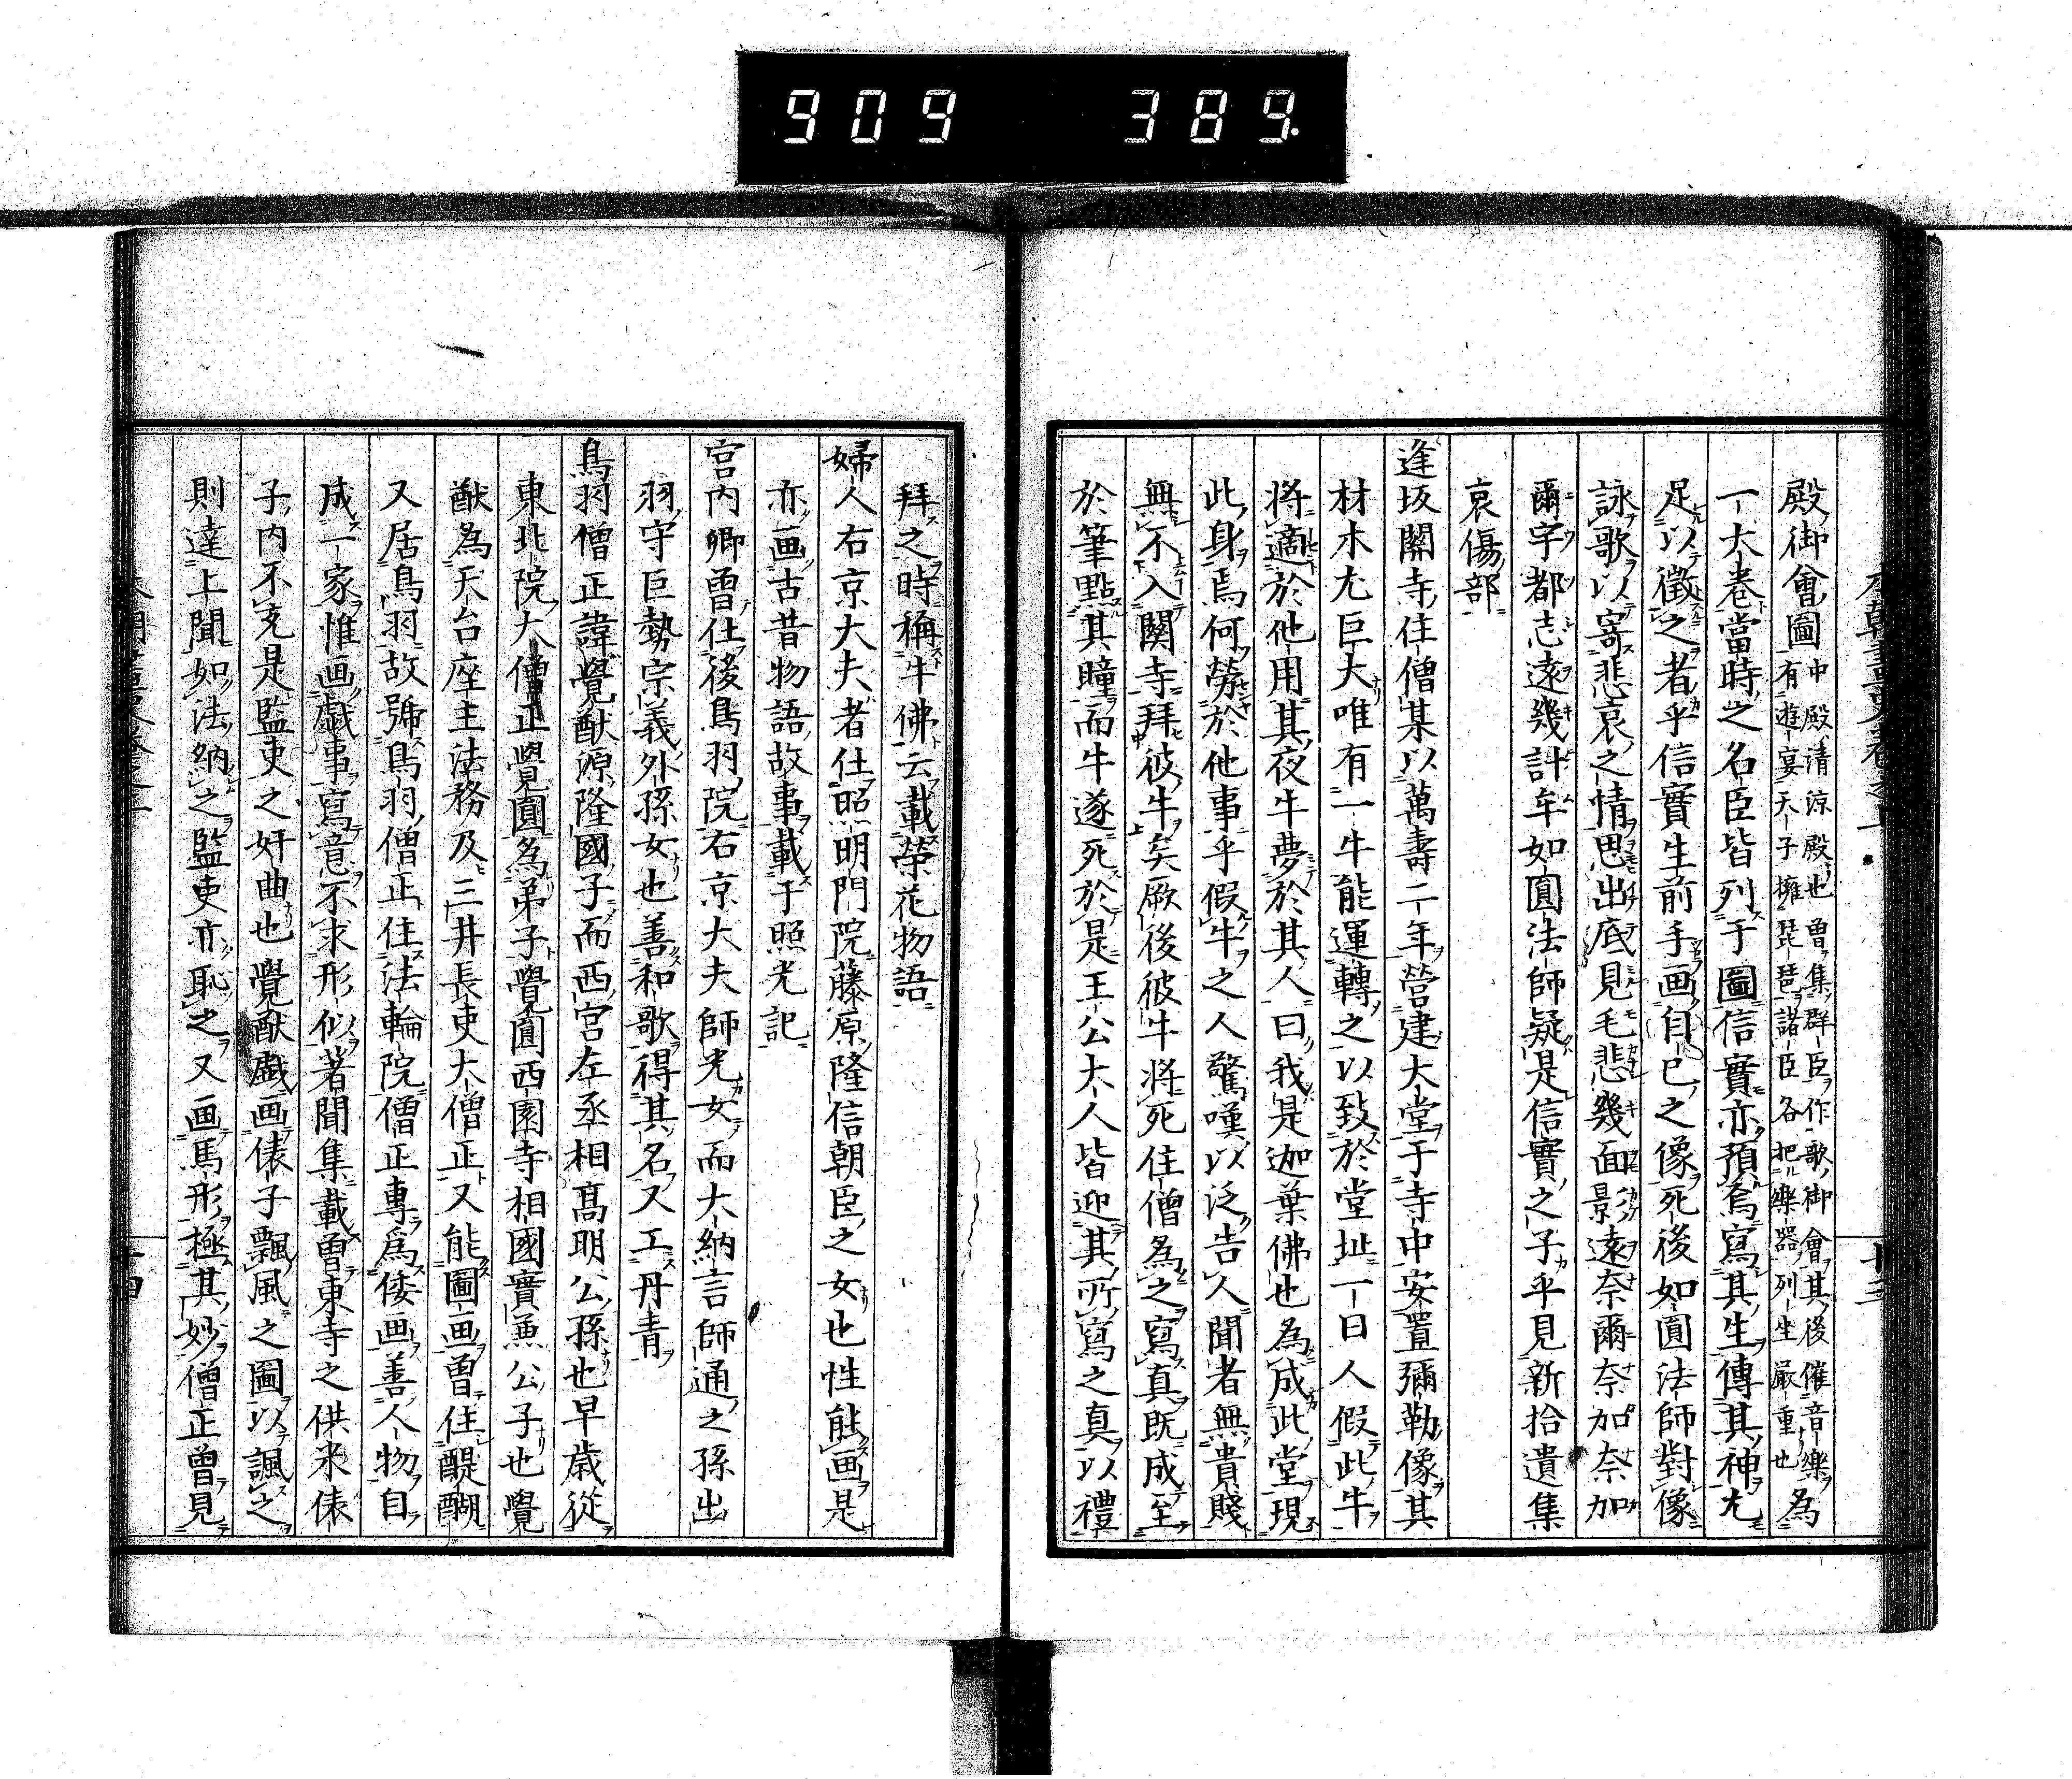 909 389.
殿御會圖中殿清涼殿也曽集群臣作歌御會其後催音樂
有遊宴天子擁琵琶諸臣各把樂器列坐嚴重也為
一大巻當時之名臣皆列于圖信實亦預焉寫其生傳其神尤
足以徴之者乎信實生前手画自已之像死後如圓法師對像
詠歌以寄悲哀之情思出底見毛悲幾面景遠奈爾奈加奈加
爾宇都志遠幾計牟如圓法師疑是信實之子乎見新拾遺集
哀傷部
逢坂關寺住僧某以萬壽二年營建大堂于寺中安置彌勒像其
材木尤巨大唯有一牛能運轉之以致於堂址一日人假此牛
將適於他用其夜牛夢於其人曰我是迦葉佛也為成此堂現
此身焉何勞於他事乎假牛之人驚嘆以泛告人聞者無貴賤
無不入關寺拜彼牛矣厥後彼牛將死住僧為之寫真既成至
於筆點其瞳而牛遂死於是王公大人皆迎其所寫之真以禮
拜之時稱牛佛云載榮花物語
婦人右京大夫者仕照明門院藤原隆信朝臣之女也性能画是
亦画古昔物語故事載于照光記
宮内卿曽仕後鳥羽院右京大夫師光女而大納言師通之孫出
羽守巨勢宗義外孫女也善和歌得其名又工丹青
鳥羽僧正諱覺猷源隆國子而西宮左丞相髙明公孫也早歳從
東北院大僧正覺圓為弟子覺圓西園寺相國實兼公子也覺
猷為天台座主法務及三井長吏大僧正又能圖画曽住醍醐
又居鳥羽故號鳥羽僧正住法輪院僧正專為倭画善人物自
成一家惟画戯事寫意不求形似著聞集載曽東寺之供米俵
子内不充是監吏之奸曲也覺猷戯画俵子飄風之圖以諷之
則達上聞如法納之監吏亦恥之又画馬形極其妙僧正曽見